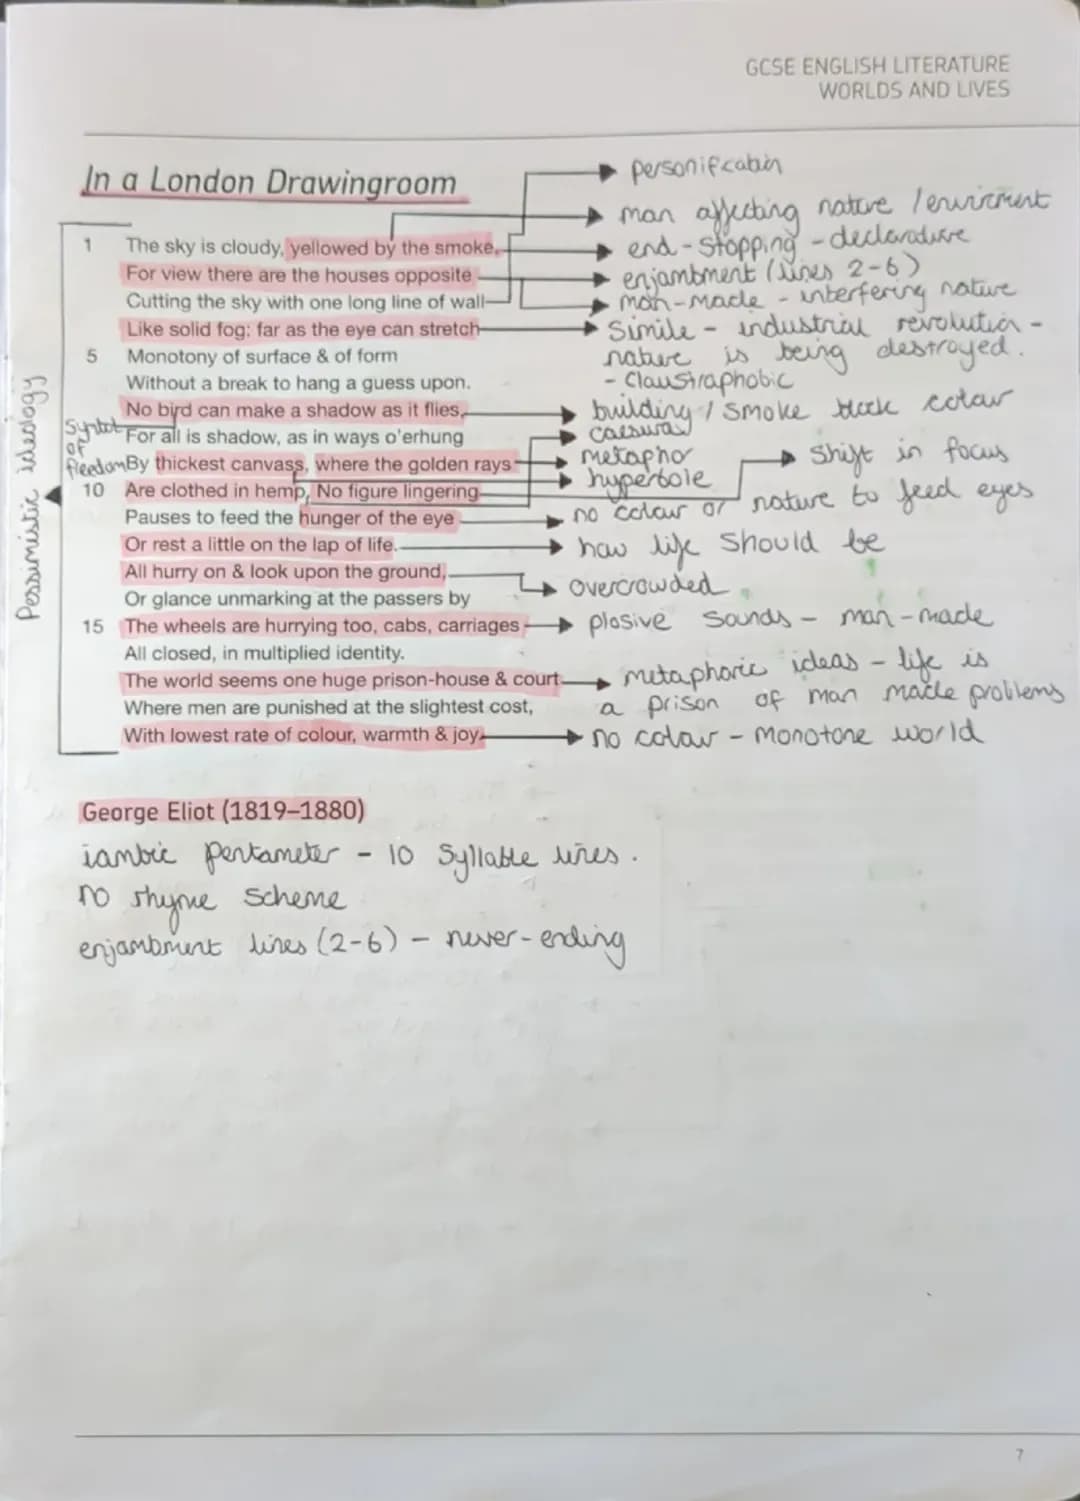 GCSE ENGLISH LITERATURE
WORLDS AND LIVES
In a London Drawingroom
1 The sky is cloudy, yellowed by the smoke.
For view there are the houses opposite
Cutting the sky with one long line of wall
Like solid fog: far as the eye can stretch
5 Monotony of surface & of form
Without a break to hang a guess upon.
No bird can make a shadow as it flies,
For all is shadow, as in ways o'erhung
By thickest canvass, where the golden rays
10 Are clothed in hemp. No figure lingering
Pauses to feed the hunger of the eye
Or rest a little on the lap of life.
All hurry on & look upon the ground,
Or glance unmarking at the passers by
15 The wheels are hurrying too, cabs, carriages
All closed, in multiplied identity.
The world seems one huge prison-house & court
Where men are punished at the slightest cost,
With lowest rate of colour, warmth & joy.
Pessimistic ideology
Symbol
of
freedom
personification
man affecting nature / enviroment
end-stopping - declarative
enjambment (lines 2-6)
man-made - interfering nature
Simile - industrial revolution -
nature is being destroyed.
- Claustraphobic
building / smoke block colour
caesura
metaphor
hyperbole
Shift in focus
no colour or nature to feed eyes
how life should be
overcrowded
plosive sounds - man-made
metaphoric ideas - life is
a prison of man made problems
no colour - monotone world
George Eliot (1819–1880)
iambic pentameter - 10 syllable lines.
no rhyme scheme
enjambment lines (2-6) - never-ending
7